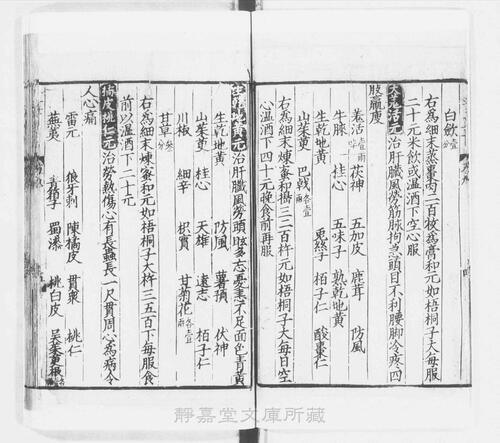 白斂壹分
右為細末蒸棗肉二百枚為膏和元如梧桐子大每服
二十元米飲或溫酒下空心服
大羌活元治肝臟風勞筋脉拘急頭目不利腰脚冷疼四
肢羸瘦
羌活 茯神 五加皮 鹿茸 防風
牛膝 桂心 五味子 熟乾地黃
生乾地黃 菟絲子 栢子仁 酸棗仁
山茱萸 巴戟各壹兩
右為細末煉蜜和擣三二百杵元如梧桐子大每日空
心溫酒下四十元晚食前再服
生乾地黃元治肝臟風勞頭眩多忘憂恚不足面色青黃
生乾地黃 防風 薯蕷 茯神
山茱萸 桂心 天雄 遠志 栢子仁
川椒 細辛 枳實 甘菊花各壹兩
甘草
右為細末煉蜜和元如梧桐子大杵三五百下每服食
前以溫酒下二十元
橘皮桃仁元治勞熱傷心有長蟲長一尺貫周心為病令
人心痛
雷元 狼牙刺 陳橘皮 貫衆 桃仁
蕪荑 青葙子 蜀漆 桃白皮 吳茱萸根
靜嘉堂文庫所藏